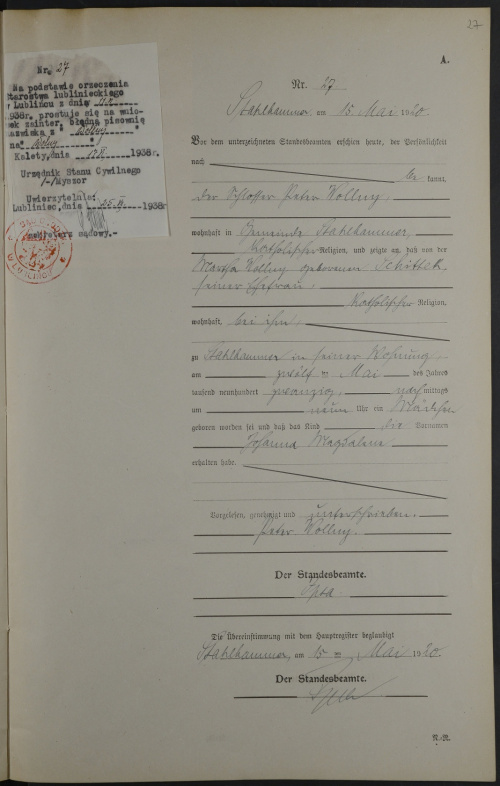 27
Nr. 27
Na podstawie orzeczenia
Starostwa lublinieckiego
w Lublińcu z dnia
1938r. prostuje się na wnio-
sek zainter, błędną pisownię
nazwiska z " Wollny "
na" Wolny "
Kalety, dnia 1938r.
Urzędnik Stanu Cywilnego
/-/Myszor
Uwierzytelnia:
Lubliniec, dnia 1938
sądowy.-
A.
Nr. 27
Stahlhammer am 15. Mai 1920.
Vor dem unterzeichneten Standesbeamten erschien heute, der Persönlichkeit
nach be kannt,
der Schlosser Peter Wollny,
wohnhaft in Gemeinde Stahlhammer,
katholischer Religion, und zeigte an, daß von der
Martha Wollny geborenen Schittek,
seiner Ehefrau,
katholischer Religion,
wohnhaft bei ihm,
zu Stahlhammer in seiner Wohnung
am zwölften Mai des Jahres
tausend neunhundert zwanzig, nach mittags
um neun Uhr ein Mädchen
geboren worden sei und daß das Kind die Vornamen
Johanna Magdalene
erhalten habe.
Vorgelesen, genehmigt und unterschrieben.
Peter Wollny.
Der Standesbeamte.
Die Übereinstimmung mit dem Hauptregister beglaubigt
Stahlhammer, am 15 ten Mai 1920.
Der Standesbeamte.